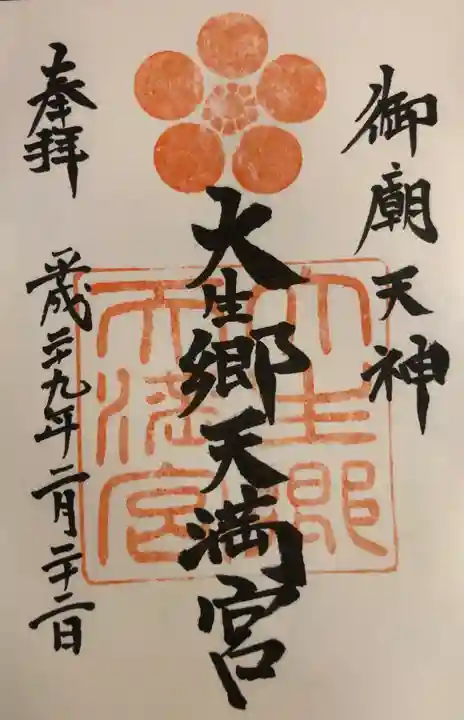 御廟天神
大生郷天満宮
大生郷天満宮
奉拝
平成二十九年二月二十二日